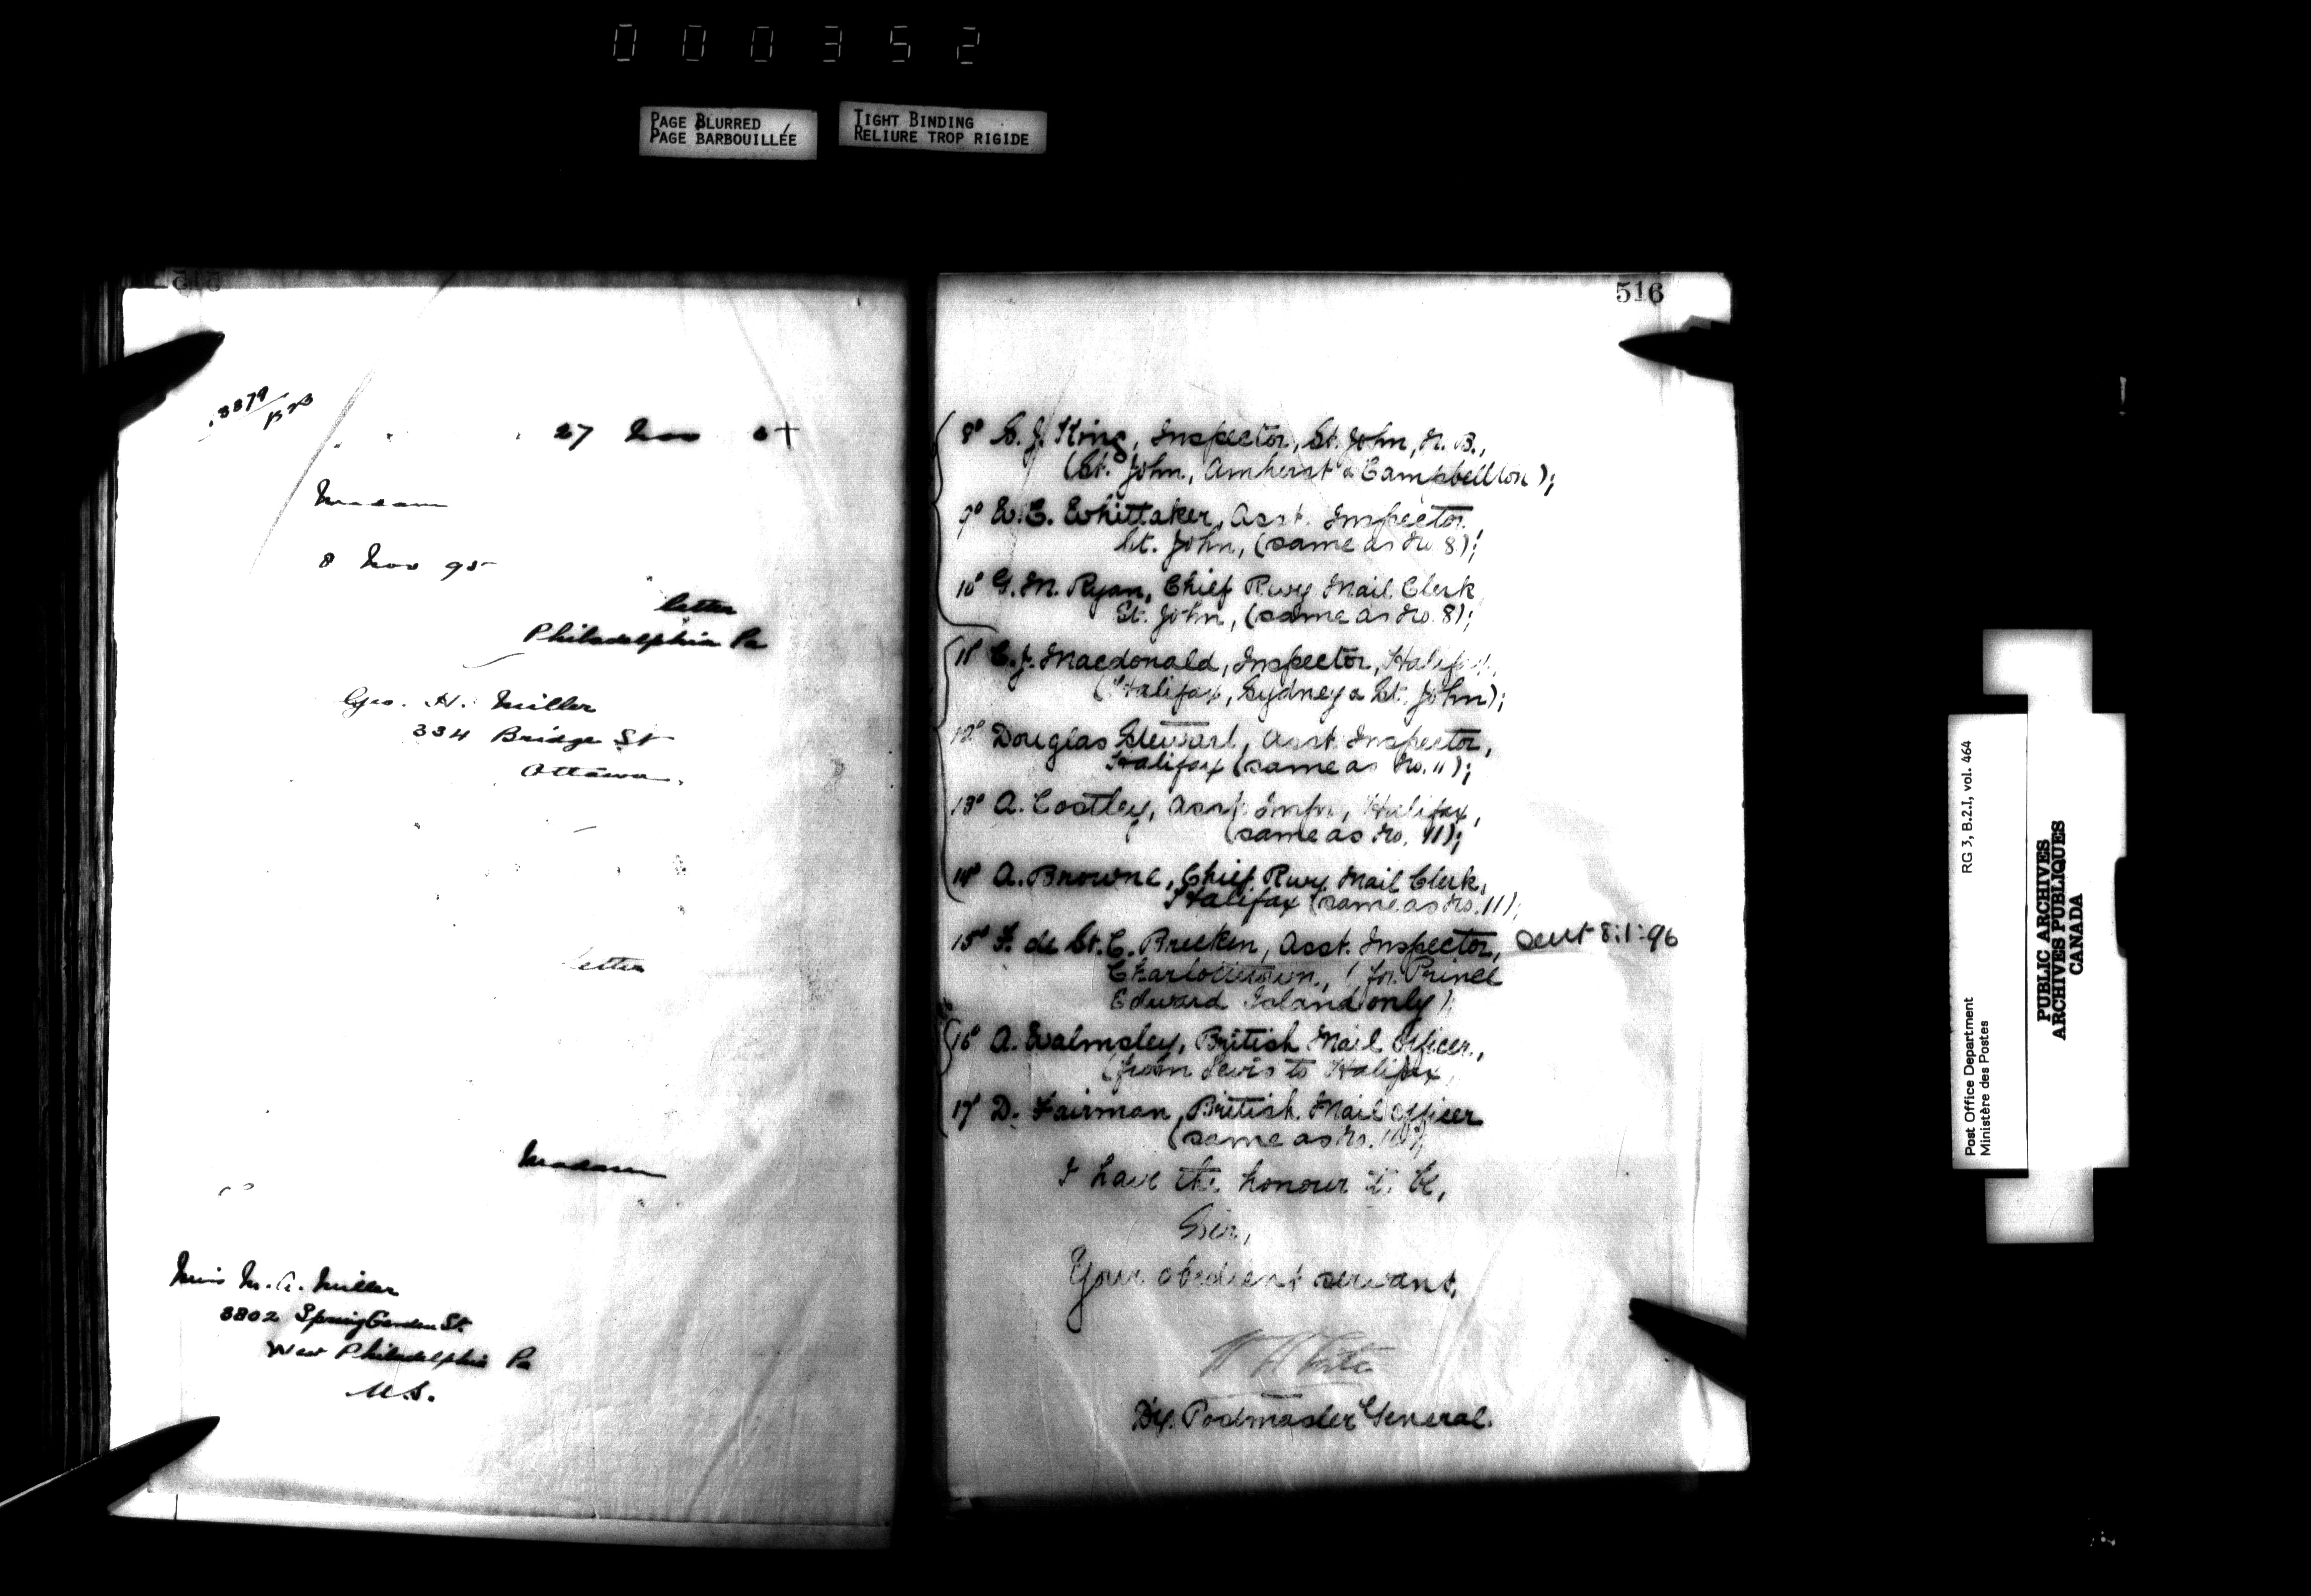 000352
PAGE BLURRED
PAGE BARBOUILLÉE
TIGHT BINDING
RELIURE TROP RIGIDE
515
3379
27 Nov
Madam
8 Nov 95
letter
Philadelphia Pa
Geo. H. Miller
334 Bridge St
Ottawa.
letter
Madam
Miss M. A. Miller
3802 Spring Garden St.
West Philadelphia Pa
U.S.
516
8° S. J. King, Inspector, St. John, N. B.,
(St. John, Amherst & Campbellton);
9° W. C. Whittaker, Asst. Inspector
St. John, (same as No 8);
10° G. M. Ryan, Chief Rwy Mail Clerk
St. John, (same as No. 8);
11° C. J. Macdonald, Inspector, Halifax,
(Halifax, Sydney & St. John);
12° Douglas Stewart, Asst. Inspector,
Halifax (same as No. 11);
13° A. Costley, Asst. Inspr, Halifax,
(same as No. 11);
14° A. Browne, Chief Rwy Mail Clerk,
Halifax (same as No. 11);
15° F. de St. C. Brecken, Asst. Inspector, sent 8:1:96
Charlottetown, (for Prince
Edward Island only);
16° A. Walmsley, British Mail Officer,
(from Levis to Halifax
17° D. Fairman, British Mail Officer
(same as No. 16);
I have the honour to be,
Sir,
Your obedient servant,
Dy. Postmaster General.
Post Office Department
Ministère des Postes
RG 3, B.2.I, vol. 464
PUBLIC ARCHIVES
ARCHIVES PUBLIQUES
CANADA